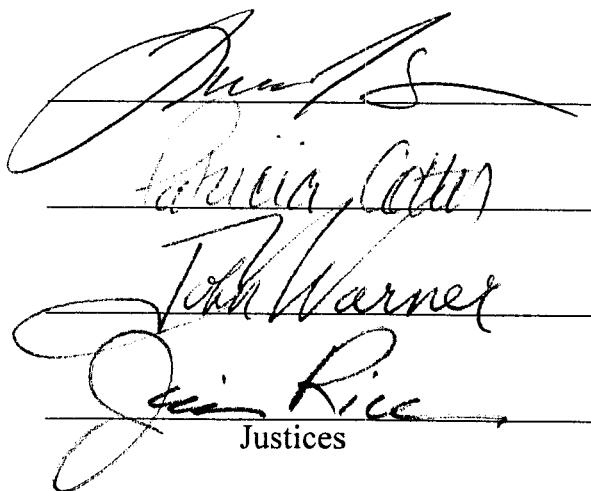 Patricia Cotter
John Warner
Jim Rice
Justices